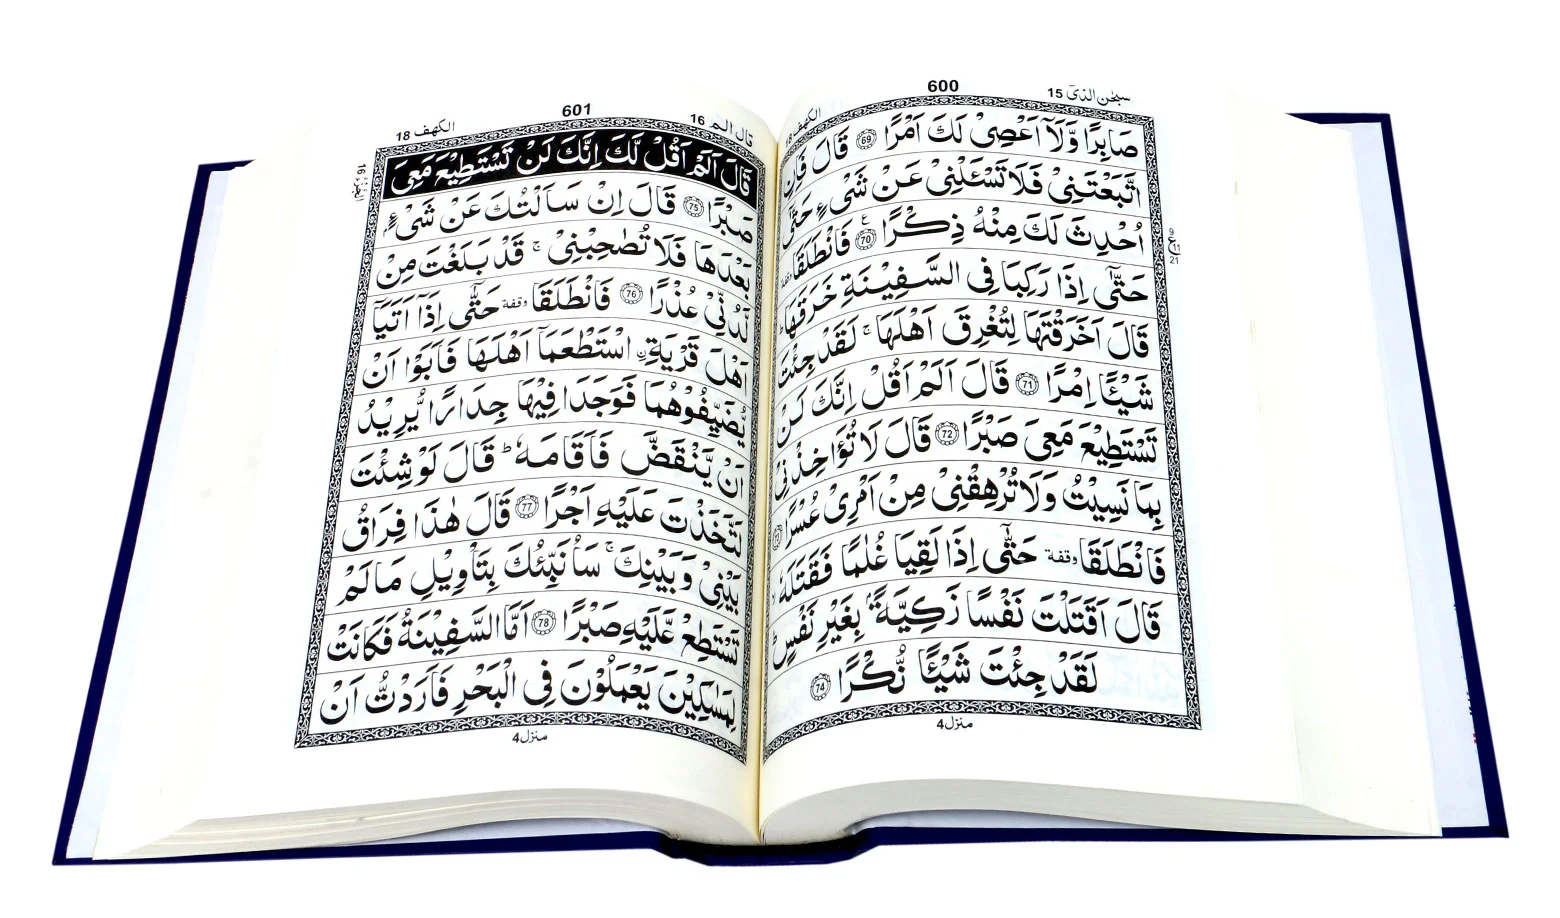 600
سبحٰن الذی 15
الکهف 18
صَابِرًا وَّلَاۤ اَعْصِیْ لَكَ اَمْرًا ۝69 قَالَ فَاِنِ
اتَّبَعْتَنِیْ فَلَا تَسْـَٔلْنِیْ عَنْ شَیْءٍ حَتّٰۤی
اُحْدِثَ لَكَ مِنْهُ ذِكْرًا ۝70 ع فَانْطَلَقَا وقفة
حَتّٰۤی اِذَا رَكِبَا فِی السَّفِیْنَةِ خَرَقَهَا ط
قَالَ اَخَرَقْتَهَا لِتُغْرِقَ اَهْلَهَا ج لَقَدْ جِئْتَ
شَیْـًٔا اِمْرًا ۝71 قَالَ اَلَمْ اَقُلْ اِنَّكَ لَنْ
تَسْتَطِیْعَ مَعِیَ صَبْرًا ۝72 قَالَ لَا تُؤَاخِذْنِیْ
بِمَا نَسِیْتُ وَلَا تُرْهِقْنِیْ مِنْ اَمْرِیْ عُسْرًا ۝73
فَانْطَلَقَا وقفة حَتّٰۤی اِذَا لَقِیَا غُلٰمًا فَقَتَلَهٗ
قَالَ اَقَتَلْتَ نَفْسًا زَكِیَّةًۢ بِغَیْرِ نَفْسٍ ط
لَقَدْ جِئْتَ شَیْـًٔا نُّكْرًا ۝74
منزل 4
9
ع
11
21
601
قال الم 16
الکهف 18
الجزء 16
قَالَ اَلَمْ اَقُلْ لَّكَ اِنَّكَ لَنْ تَسْتَطِیْعَ مَعِیَ
صَبْرًا ۝75 قَالَ اِنْ سَاَلْتُكَ عَنْ شَیْءٍۭ
بَعْدَهَا فَلَا تُصٰحِبْنِیْ ج قَدْ بَلَغْتَ مِنْ
لَّدُنِّیْ عُذْرًا ۝76 فَانْطَلَقَا وقفة حَتّٰۤی اِذَاۤ اَتَیَاۤ
اَهْلَ قَرْیَةِ ِۨاسْتَطْعَمَاۤ اَهْلَهَا فَاَبَوْا اَنْ
یُّضَیِّفُوْهُمَا فَوَجَدَا فِیْهَا جِدَارًا یُّرِیْدُ
اَنْ یَّنْقَضَّ فَاَقَامَهٗ ط قَالَ لَوْ شِئْتَ
لَتَّخَذْتَ عَلَیْهِ اَجْرًا ۝77 قَالَ هٰذَا فِرَاقُ
بَیْنِیْ وَبَیْنِكَ ج سَاُنَبِّئُكَ بِتَاْوِیْلِ مَا لَمْ
تَسْتَطِعْ عَّلَیْهِ صَبْرًا ۝78 اَمَّا السَّفِیْنَةُ فَكَانَتْ
لِمَسٰكِیْنَ یَعْمَلُوْنَ فِی الْبَحْرِ فَاَرَدْتُّ اَنْ
منزل 4